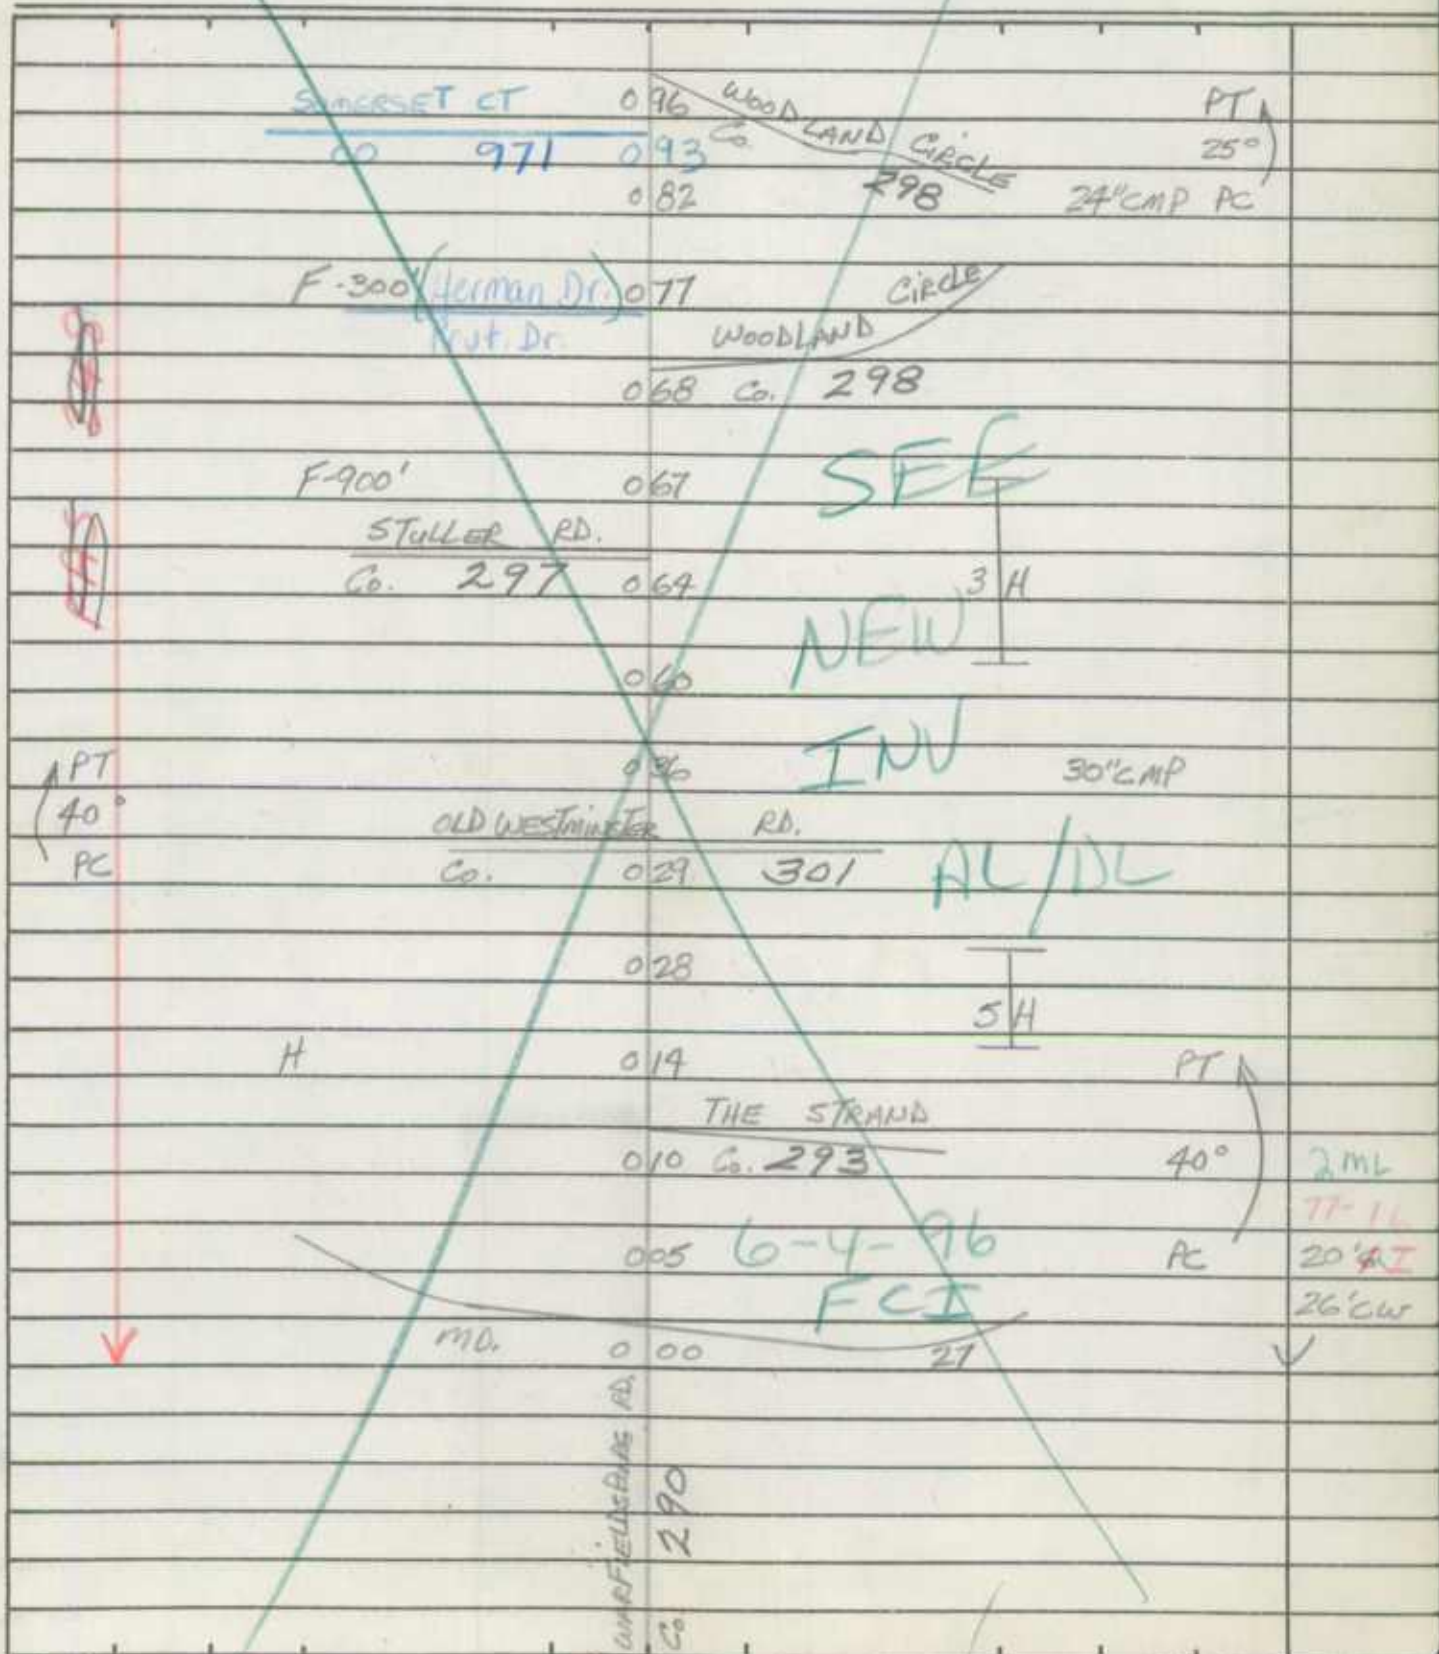 SOMERSET CT 0 96 WOODLAND CIRCLE PT
CO 971 0 93 Co. 25°
0 82 298 24"CMP PC
F-300' (Herman Dr.) 0 77 CIRCLE
Prvt. Dr. WOODLAND
0 68 Co. 298
F-900' 0 67 SEE
STULLER RD.
Co. 297 0 64 3 H
NEW
0 60
PT 0 36 INV 30"CMP
40° OLD WESTMINSTER RD.
PC Co. 0 29 301 AL/DL
0 28
5 H
H 0 14 PT
THE STRAND
0 10 Co. 293 40° 2 ML
77-1L
0 05 6-4-96 PC 20' I
FCI 26'CW
MD. 0 00 27
WARFIELDSBURG RD.
Co. 290